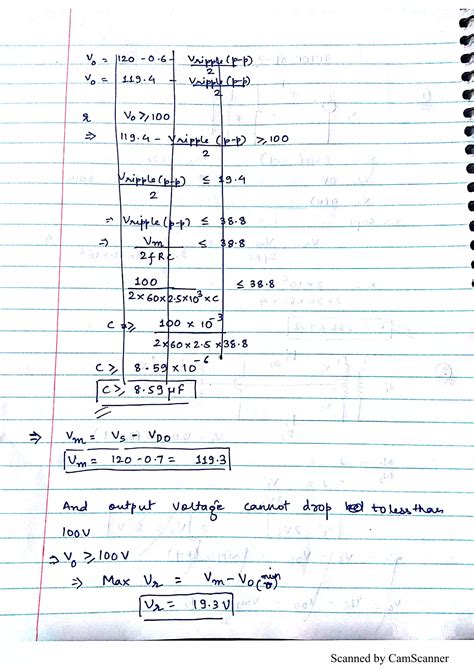 V₀ = 120 - 0.6 - Vripple(p-p)/2
V₀ = 119.4 - Vripple(p-p)/2
& V₀ ⩾ 100
⇒ 119.4 - Vripple(p-p)/2 ⩾ 100
Vripple(p-p)/2 ≤ 19.4
⇒ Vripple(p-p) ≤ 38.8
⇒ Vm/2fRC ≤ 38.8
100/2×60×2.5×10³×C ≤ 38.8
C ⩾ 100 × 10⁻³/2×60×2.5×38.8
C ⩾ 8.59 × 10⁻⁶
C ⩾ 8.59 μF
⇒ Vm = VS - VD0
Vm = 120 - 0.7 = 119.3
And output voltage cannot drop to less than
100V
⇒ V₀ ⩾ 100V
⇒ Max Vr = Vm - V0(min)
Vr = 19.3V
Scanned by CamScanner